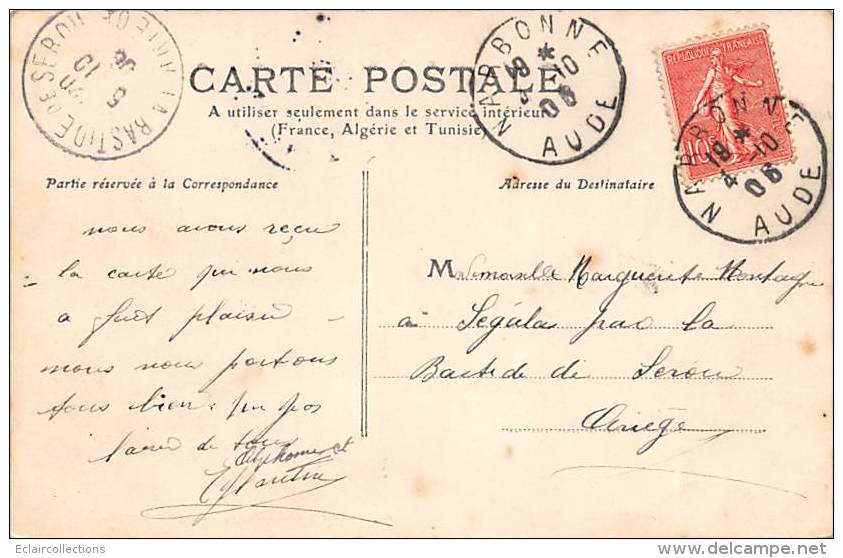 LA BASTIDE DE SEROU ARIEGE
5 10 06
CARTE POSTALE
A utiliser seulement dans le service intérieur
(France, Algérie et Tunisie)
NARBONNE AUDE
19 * 4 -10 06
REPUBLIQUE FRANÇAISE
10c
NARBONNE AUDE
19 * 4 -10 06
Partie réservée à la Correspondance
nous avons reçu
la carte qui nous
a fait plaisir
nous nous portons
tous bien :
de tous
Adresse du Destinataire
Mademoiselle Marguerite Montagne
à Ségalas par la
Bastide de Serou
Ariège
Eclaircollections
delcampe.net